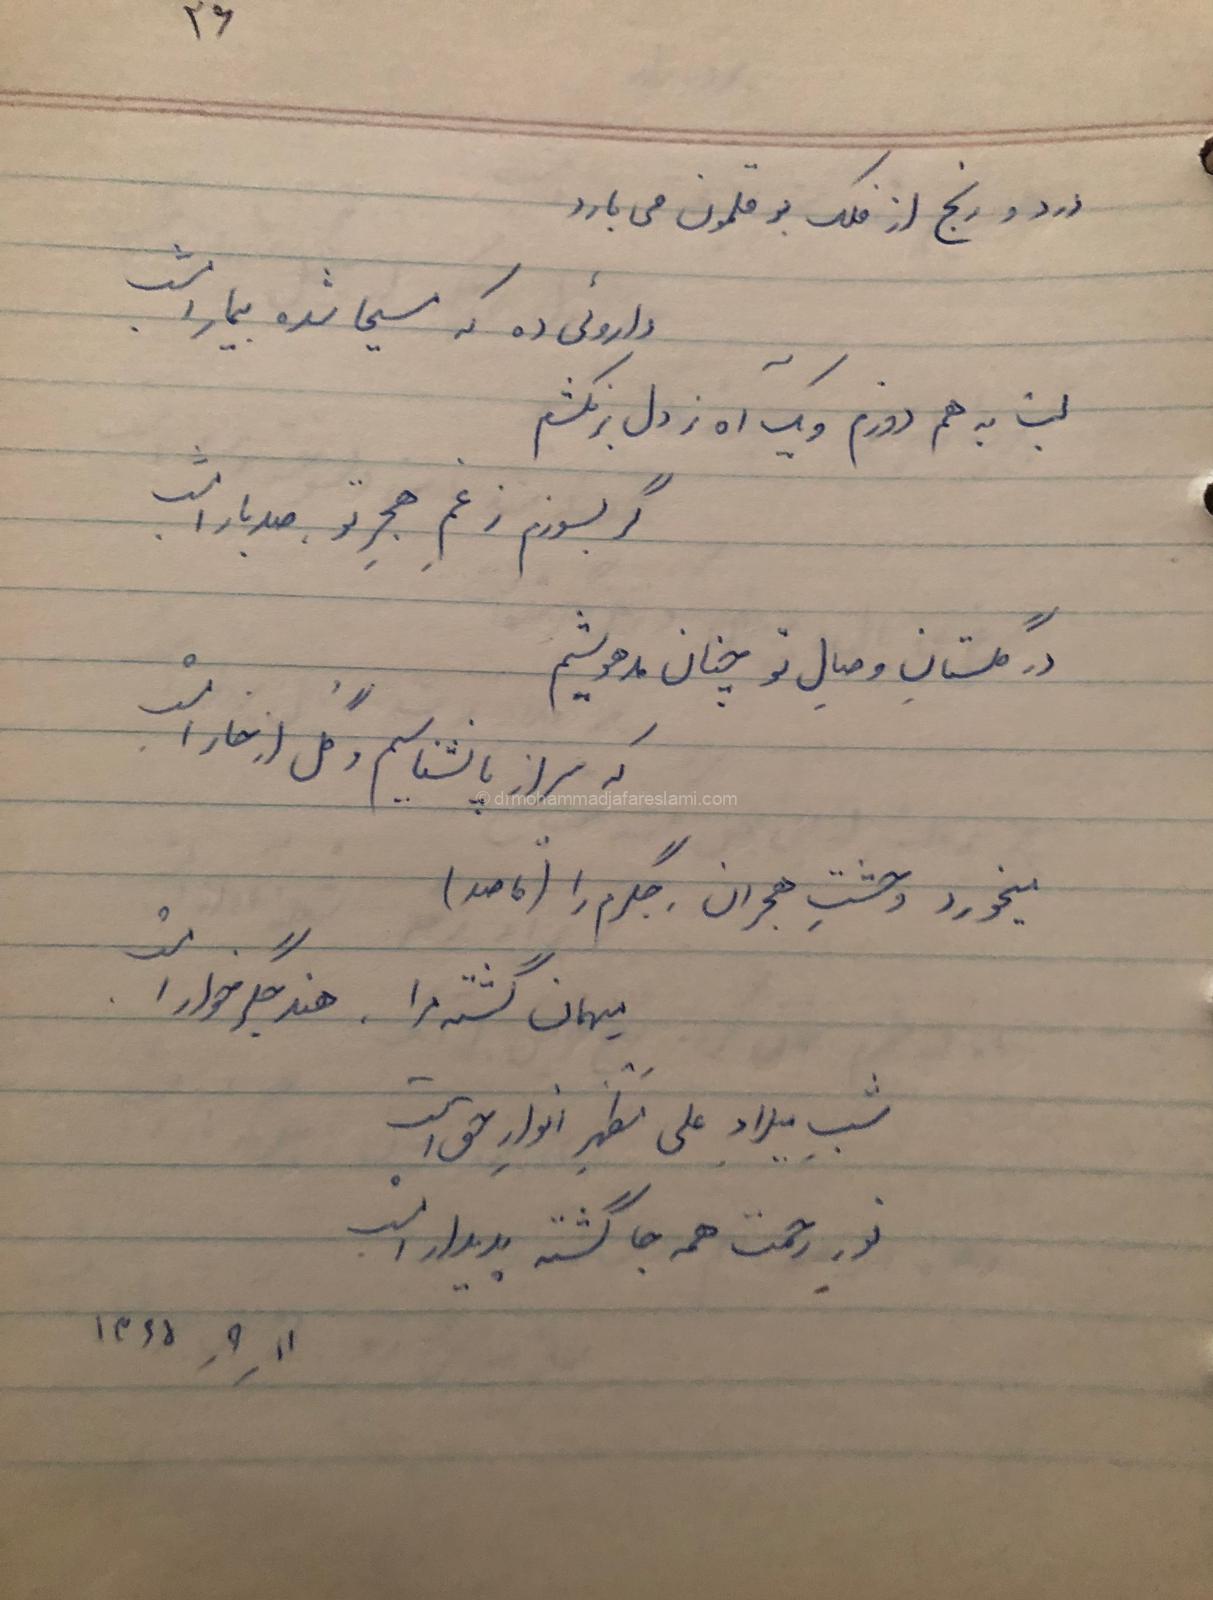 ۲۶
درد و رنج از فلک بوقلمون می بارد
داروئی ده که مسیحا شده بیمار امشب
لب به هم دوزم و یک آه ز دل برنکشم
گر بسوزم ز غمِ هجرِ تو صد بار امشب
در گلستانِ وصالِ تو چنان مدهوشیم
که سر از پا نشناسیم و گُل از خار امشب
میخورد وحشتِ هجران، جگرم را (قاصد)
میهمان گشته مرا، هند جگرخوار امشب
شبِ میلادِ علی مَظهرِ انوارِ حق است
نورِ رحمت همه جا گشته پدیدار امشب
۱۱ـ۹ـ۱۳۶۵
© drmohammadjafareslami.com